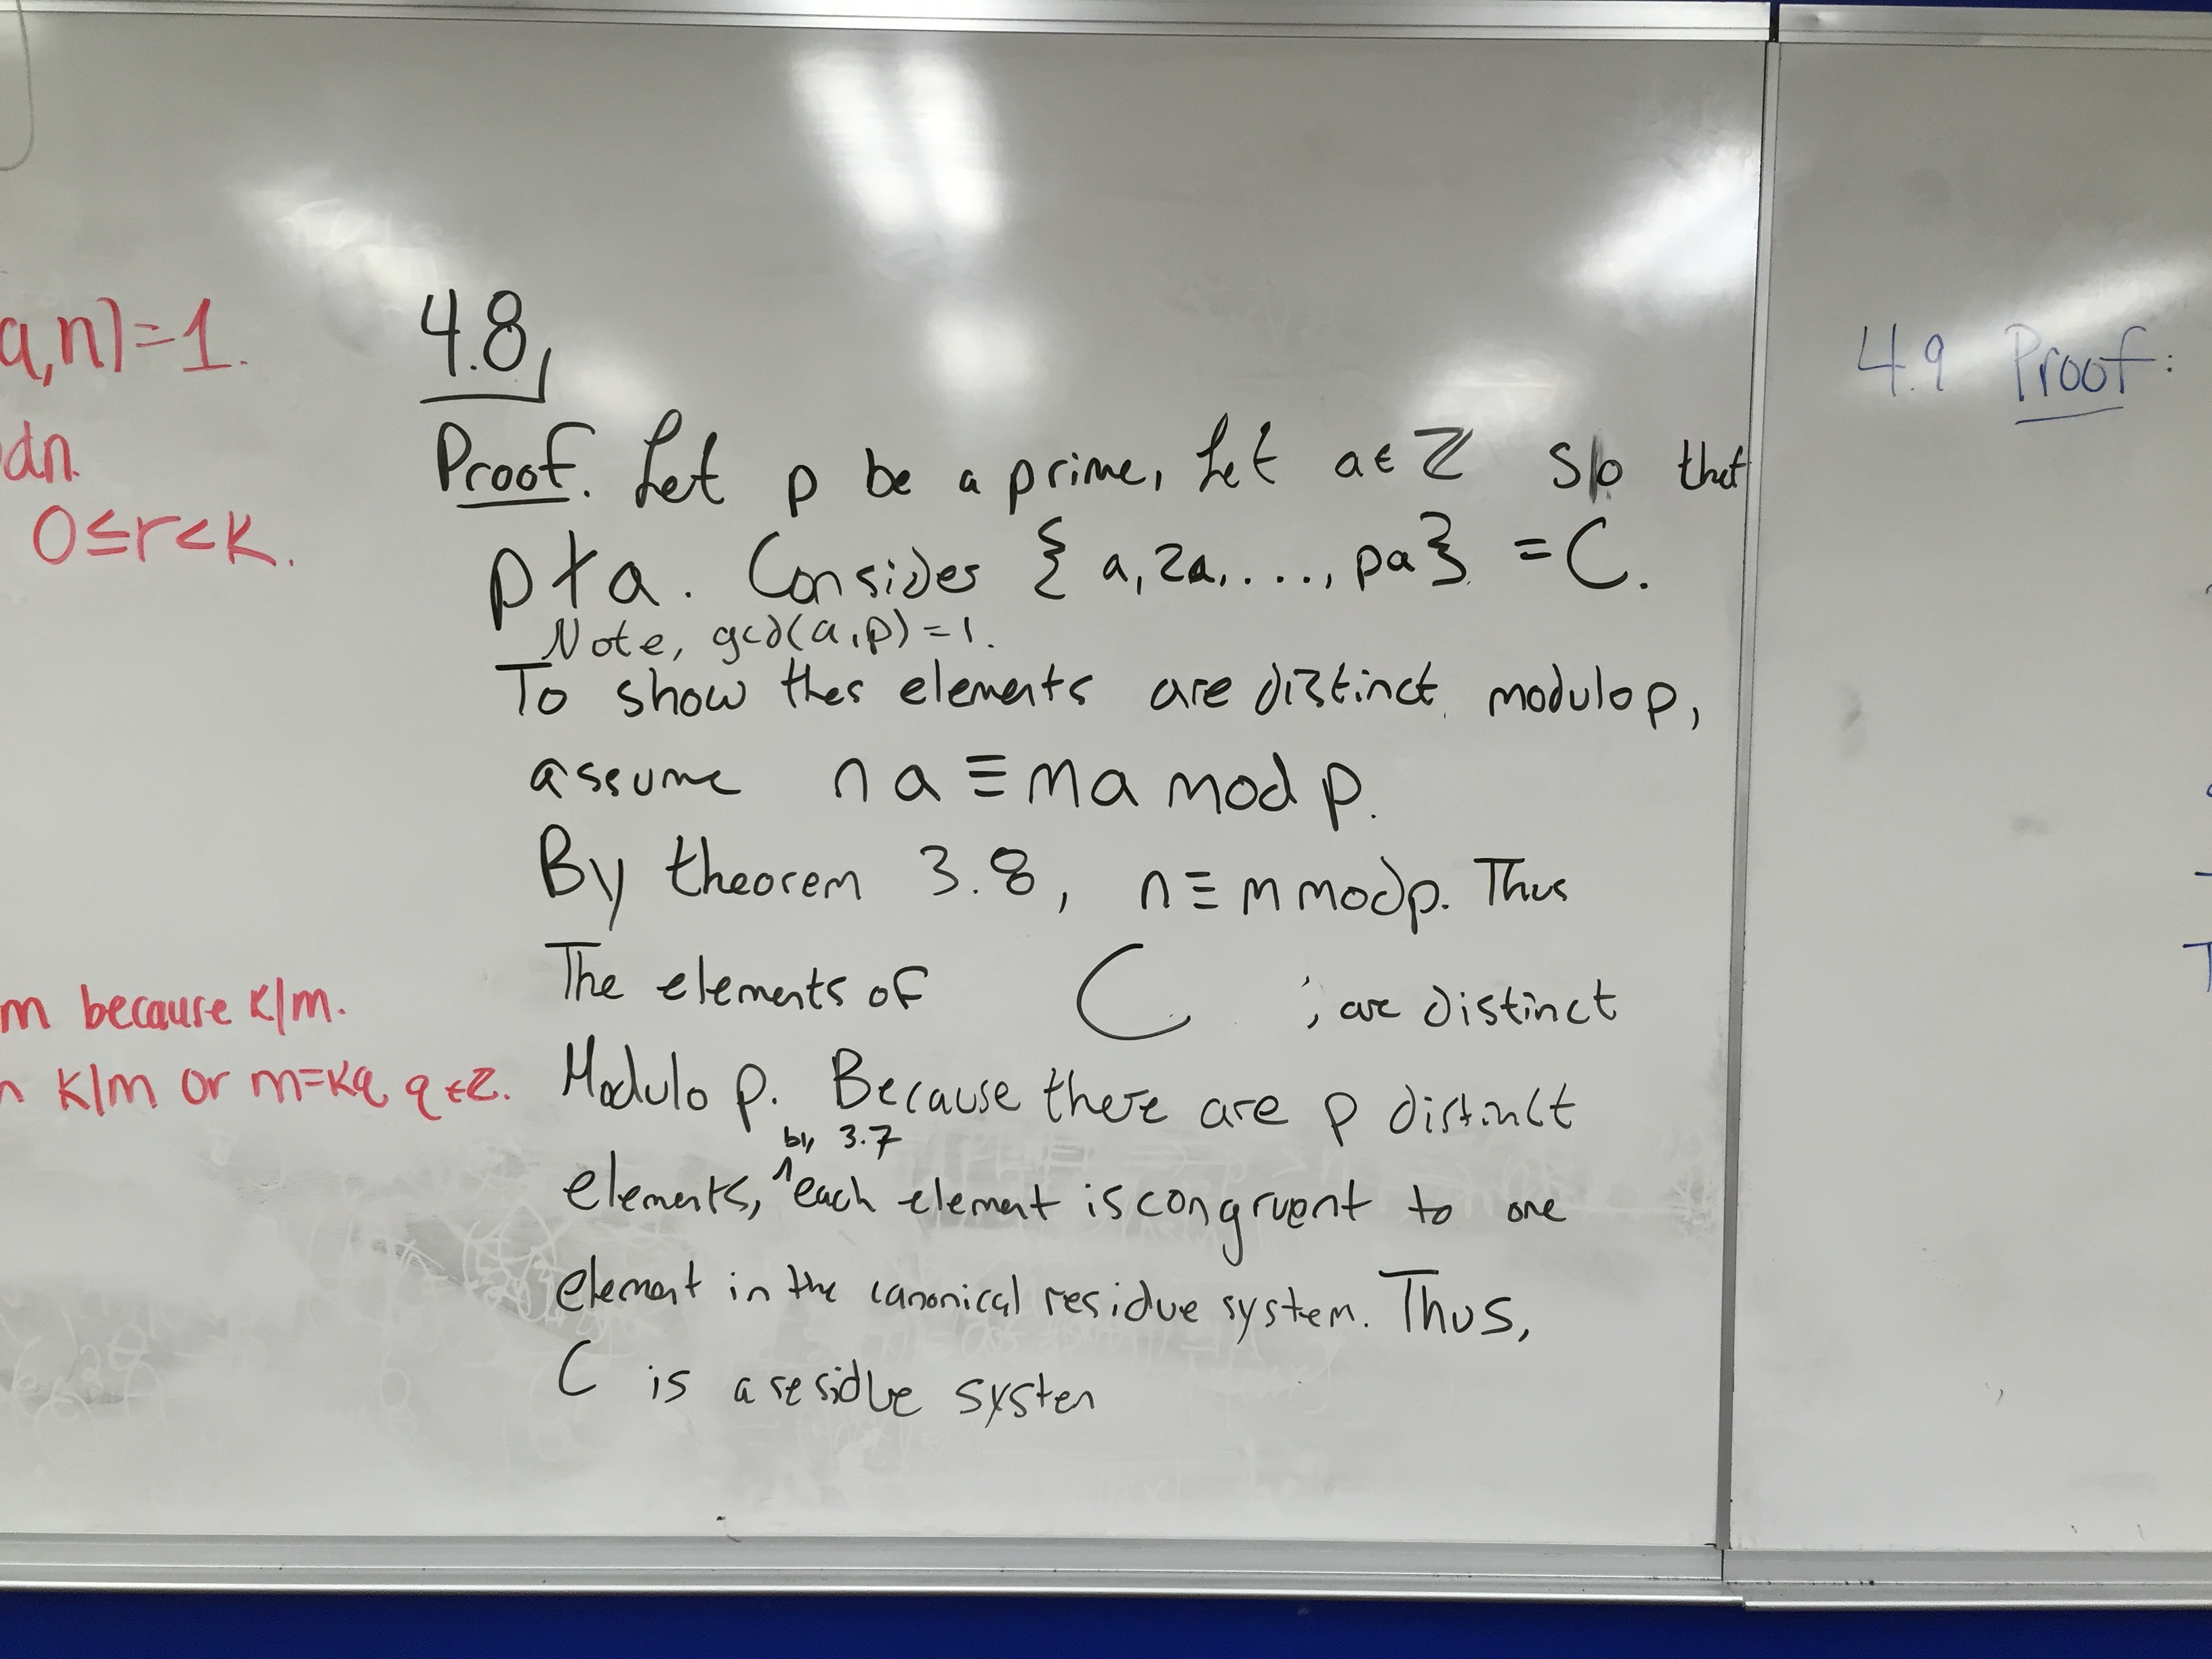 a,n)=1.
dn.
0≤r<k.
m because k|m.
k|m or m=kq, q∈Z.
4.8
Proof. Let p be a prime, Let a∈ℤ so that
p∤a. Consider { a, 2a, ...., pa} = C.
Note, gcd(a,p)=1.
To show thes elements are distinct modulo p,
assume na≡ma mod p.
By theorem 3.8, n≡m modp. Thus
The elements of C , are distinct
Modulo p. Because there are p distinct
by 3.7
elements, ^each element is congruent to one
element in the canonical residue system. Thus,
C is a residue system
4.9 Proof: